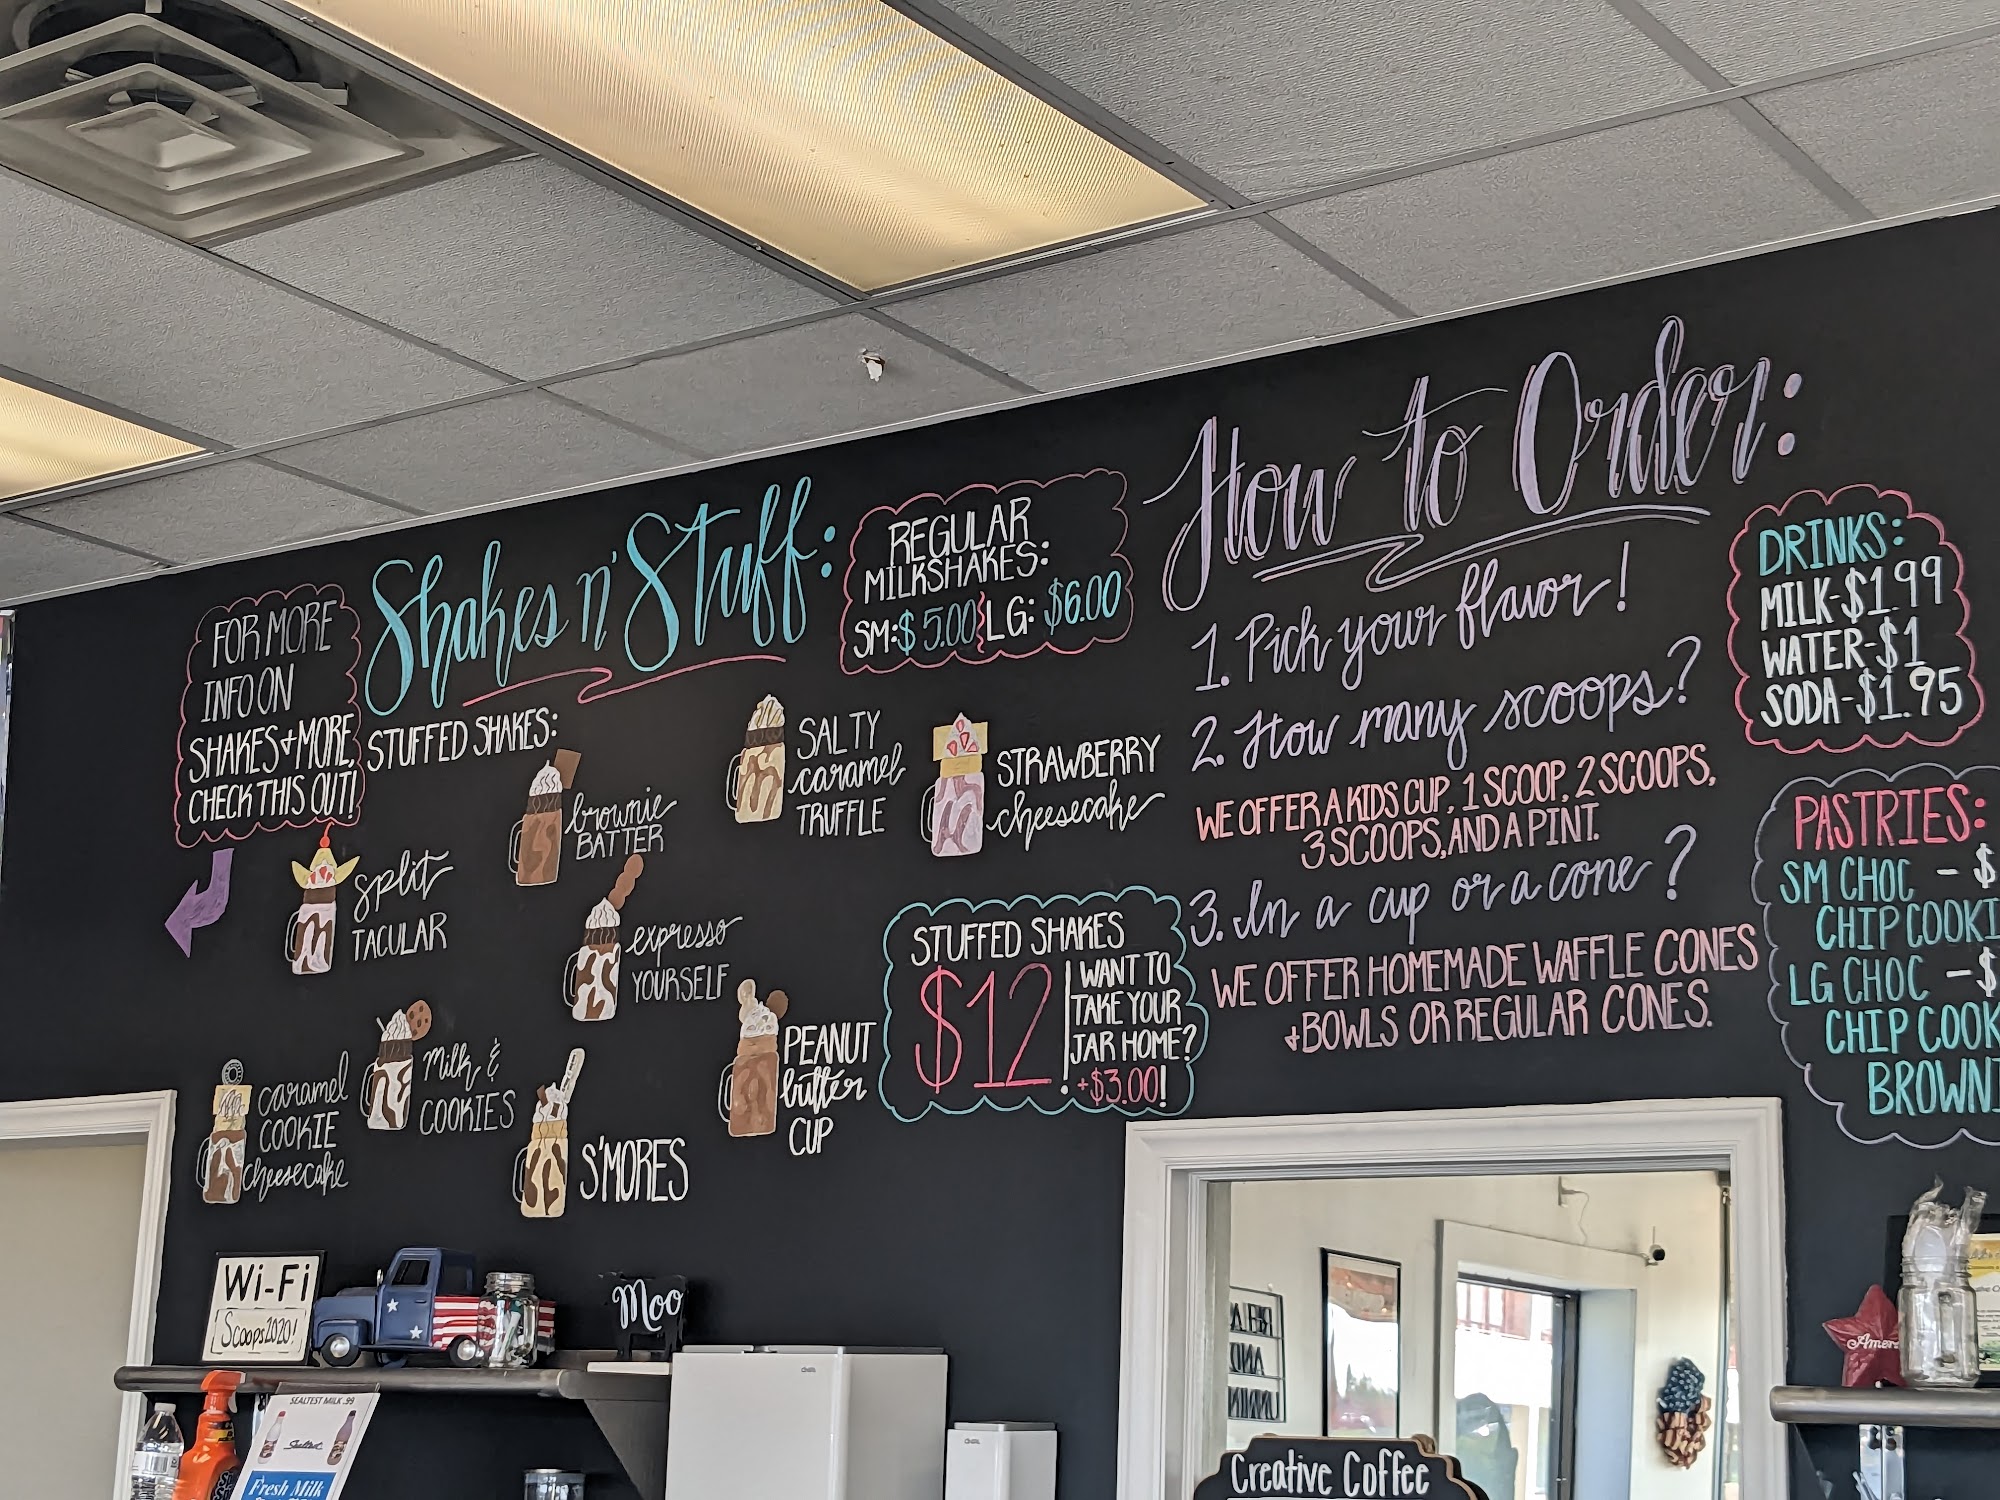 FOR MORE
INFO ON
SHAKES + MORE,
CHECK THIS OUT!
Shakes n' Stuff:
STUFFED SHAKES:
REGULAR
MILKSHAKES:
SM: $5.00 LG: $6.00
split
TACULAR
brownie
BATTER
SALTY
caramel
TRUFFLE
STRAWBERRY
cheesecake
expresso
YOURSELF
caramel
COOKIE
cheesecake
Milk &
COOKIES
S'MORES
PEANUT
butter
CUP
STUFFED SHAKES
$12
WANT TO
TAKE YOUR
JAR HOME?
+$3.00!
How to Order:
1. Pick your flavor!
2. How many scoops?
WE OFFER A KIDS CUP, 1 SCOOP, 2 SCOOPS,
3 SCOOPS, AND A PINT.
3. In a cup or a cone?
WE OFFER HOMEMADE WAFFLE CONES
+ BOWLS OR REGULAR CONES.
DRINKS:
MILK-$1.99
WATER-$1
SODA-$1.95
PASTRIES:
SM CHOC - $
CHIP COOKI
LG CHOC - $
CHIP COOK
BROWNI
Wi-Fi
Scoops2020!
Moo
SEALTEST MILK .99
Sealtest
Fresh Milk
AND
Creative Coffee
Amer